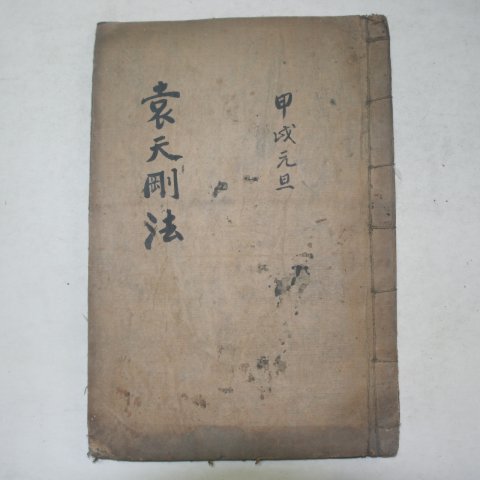 甲戌元旦
袁天剛法